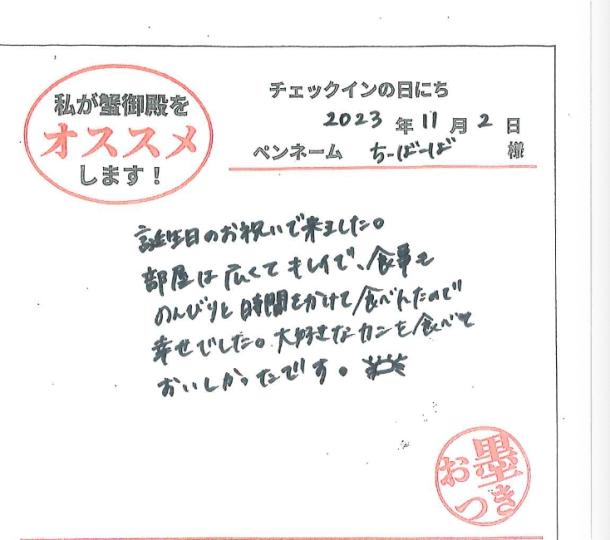 私が蟹御殿を
オススメ
します！
チェックインの日にち
2023 年 11 月 2 日
ペンネーム ちーばーば 様
誕生日のお祝いで来ました。
部屋は広くてキレイで、食事も
のんびりと時間をかけて食べれたので
幸せでした。大好きなカニも食べて
おいしかったです。
お墨
つき